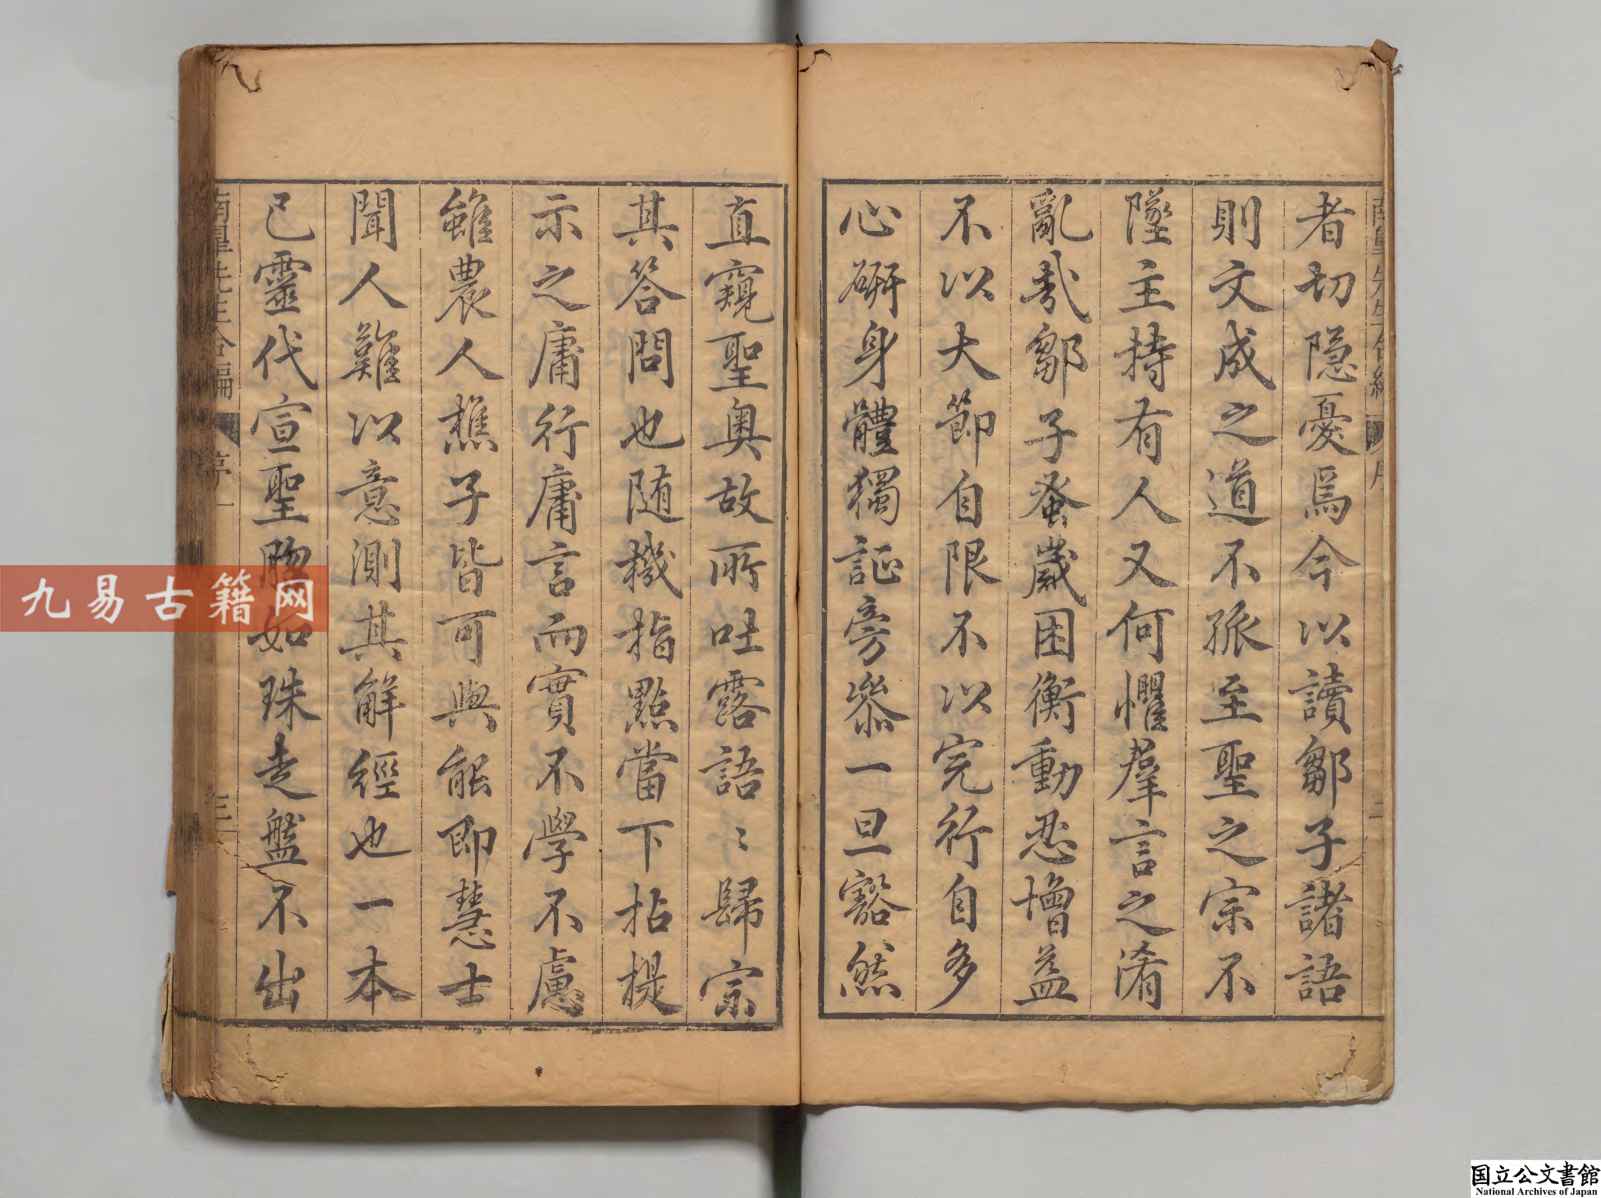 者切隠憂焉今以讀鄒子諸語
則文成之道不孤至聖之宗不
墜主持有人又何懼羣言之淆
亂哉鄒子蚤歲困衡動忍增益
不以大節自限不以完行自多
心研身體獨証旁叅一旦豁然
直窺聖奥故所吐露語〻歸宗
其答問也随機指點當下拈提
示之庸行庸言而實不學不慮
雖農人樵子皆可與能即慧士
聞人難以意測其解經也一本
已靈代宣聖 如珠走盤不出
南臯先生合編 序 三
九易古籍网
国立公文書館
National Archives of Japan